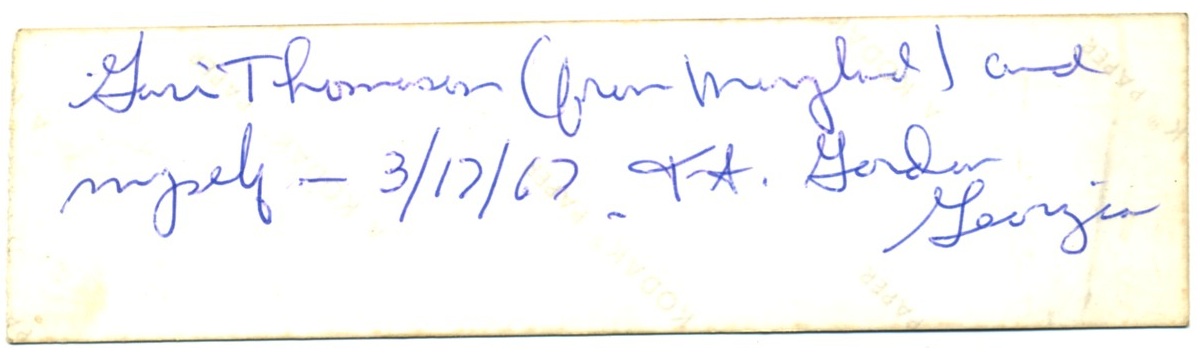 Gari Thomason (from Maryland) and
myself — 3/17/67. Ft. Gordon
Georgia
KODAK
PAPER